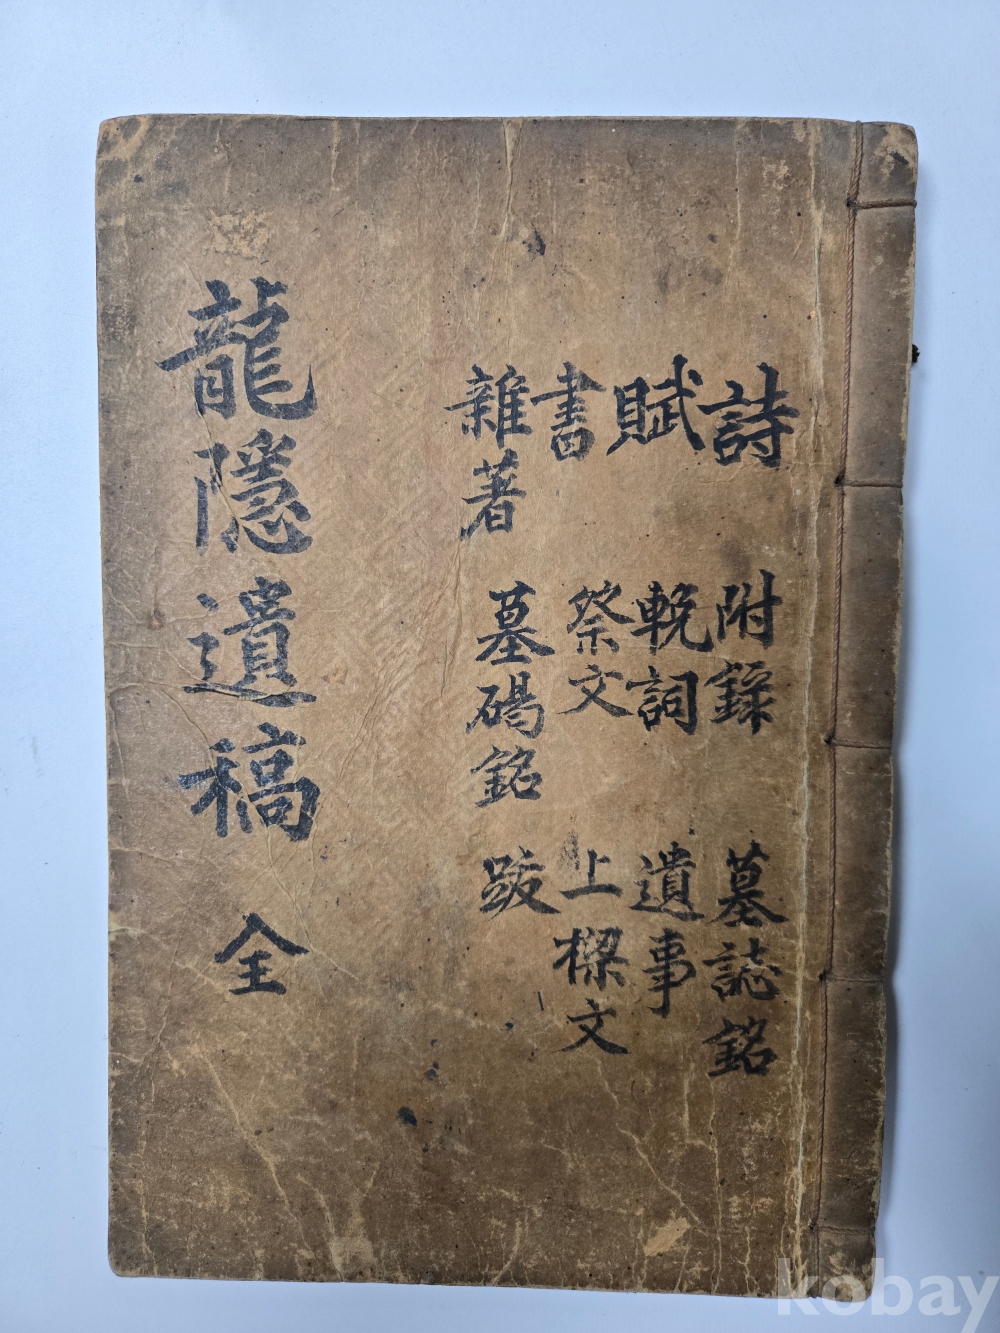 詩 賦 書 雜著
附錄 輓詞 祭文 墓碣銘
墓誌銘 遺事 上樑文 跋
龍隱遺稿 全
kobay